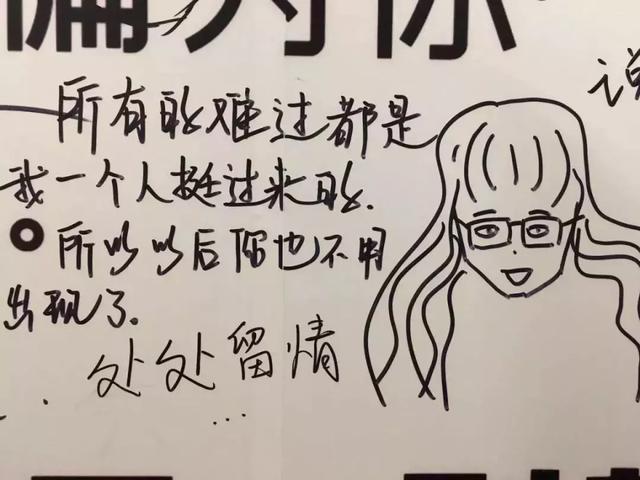 偏为你
所有的难过都是
我一个人挺过来的.
所以以后你也不用
出现了.
处处留情
...